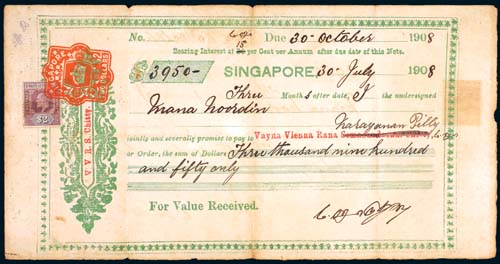 No. Due 30- October 1908
Bearing Interest at 15 per Cent per Annum after due date of this Note.
$ 3950- SINGAPORE 30- July 1908
Three Months after date, I the undersigned
Mana Noordin
Narayanan Pilly
jointly and severally promise to pay to Vayna Vienna Rana
or Order, the sum of Dollars Three thousand nine hundred
and fifty only
For Value Received.
V. V. R. S. Chitty.
SINGAPORE
$2